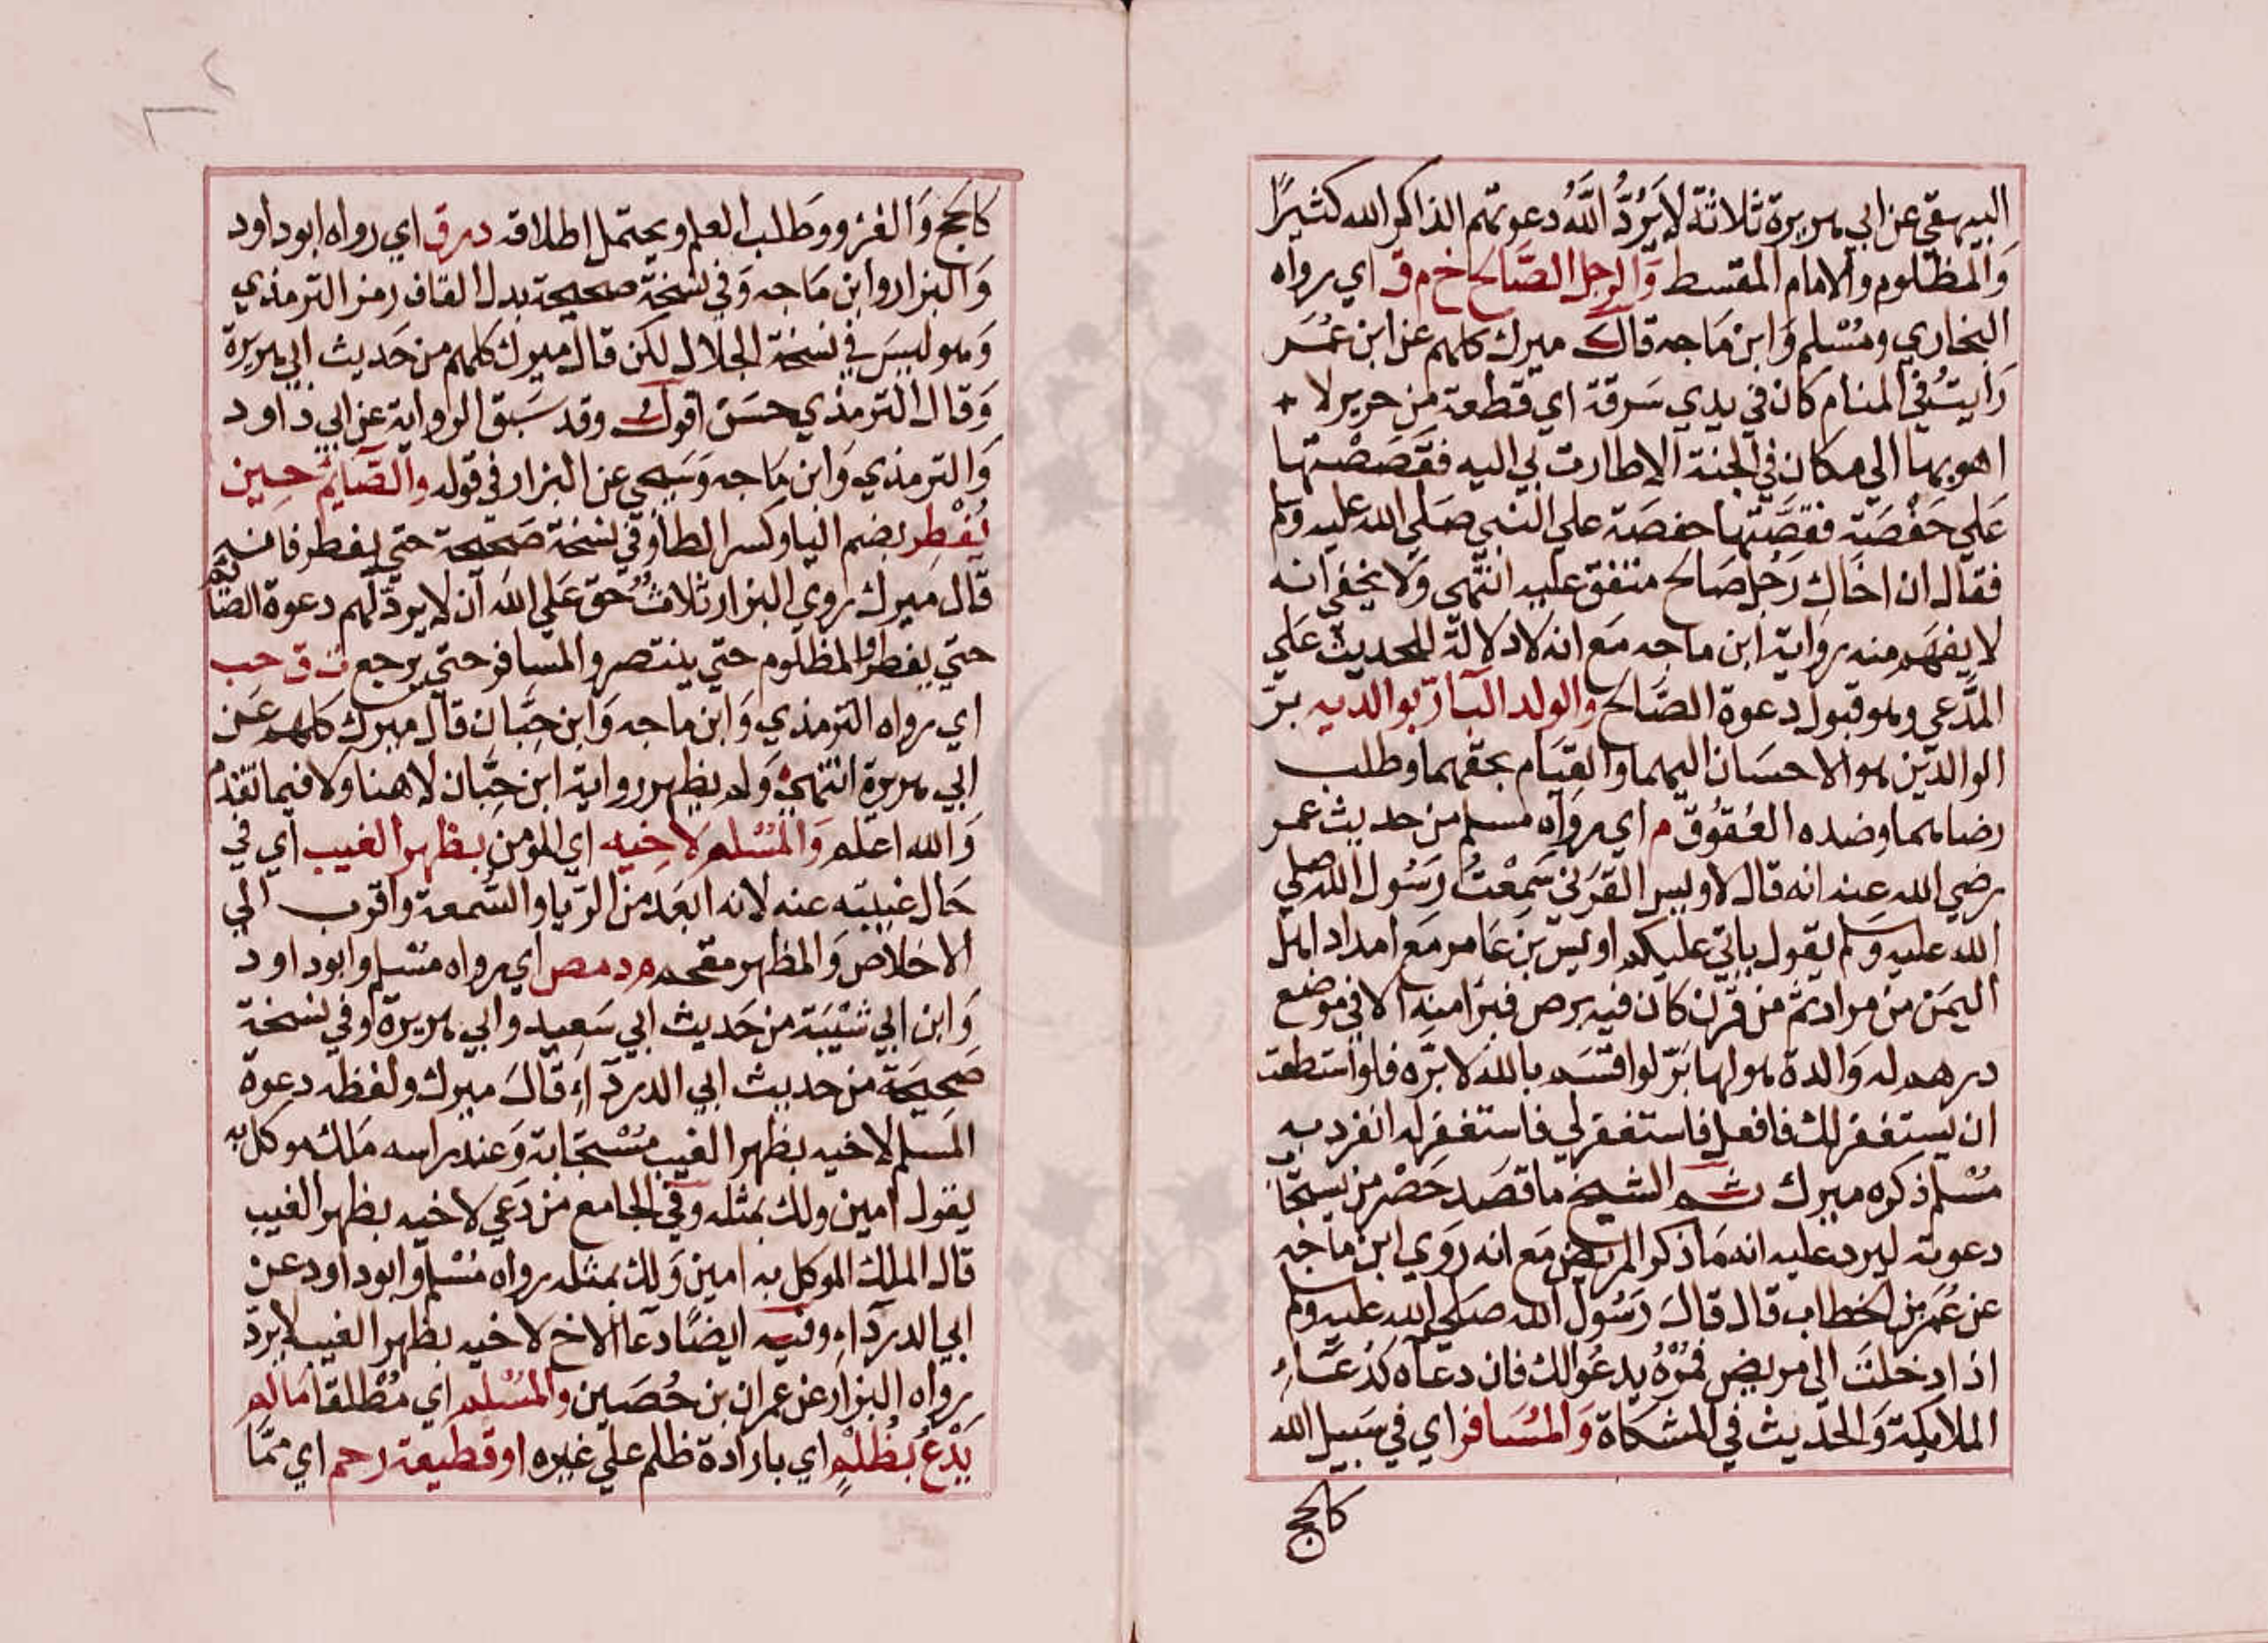 البيهقي عن ابي هريرة ثلاثة لا يَرُدُّ اللَّهُ دعوتهم الذاكر الله كثيرًا
وَالمظلوم والامام المقسط وَالرجل الصَّالح خ م ق اي رواه
البخاري ومُسْلم وَابن مَاجه قال ميرك كلهم عن ابن عُمَر
رَايتُ في المنام كان في يدي سَرقة اي قطعة من حرير لا
اهوي بها الي مكان في الجنة الا طارت بي اليه فقَصَصْتها
عَلي حَفْصَة فقصَّتها حفصَة علي النبي صَلي الله عليه وسلم
فقال ان اخاك رَجُل صَالح متفق عليه انتهي وَلا يخفي انه
لا يفهَم منه رواية ابن ماجه مَع انه لا دلالة للحديث عَلي
المدَّعي وهو قبول دعوة الصَّالح والولد البَارّ بوالديه برّ
الوالدَين هو الاحسَان اليهما وَالقيَام بحقهما وطلب
رضاهما وضده العُقوُق م اي رواه مسلم من حديث عمر
رضي الله عنه انه قال لاويس القرَني سَمِعْتُ رَسُول الله صلي
الله عليه وسَلم يقول ياتي عليكم اويس بن عَامر مَع امداد اهل
اليمَن من مراد ثم من قرَن كان فيه برص فبرَا منه الا في موضع
درهم له وَالدة هو لها بَرّ لو اقسَم بالله لابرَّه فلو استطعت
ان يستغفر لك فافعل فاستغفر لي فاستغفر له انفرد به
مُسْلم ذكره ميرك ثم الشيخ ما قصَد حَصْر من يستجَاب
دعوته ليرد عليه انه مَا ذكر المريض مَع انه رَوَي ابن مَاجه
عن عُمَر بن الخطاب قال قالَ رَسُول الله صَلي الله عليه وسلم
اذا دخلتَ الي مريض فمُرْهُ يدعُو لك فان دعَآه كدُعَآءِ
الملايكة وَالحَديث في المشكاة وَالمُسَافر اي في سَبيل الله
كالحج
كالحج وَالغزو وَطلب العلم ويحتمل اطلاقه د ر ق اي رواه ابو داود
وَالبزار وابن مَاجه وَفي نسْخَة صحيحة بدل القاف رمز الترمذي
وَهو ليسَ في نسخة الجلال لكن قال ميرك كلهم من حَديث ابي هريرة
وَقال الترمذي حسَن اقول وقد سَبق الرواية عن ابي داود
وَالترمذي وَابن مَاجه وَسَيجي عن البزار في قوله والصَّايم حين
يُفْطِر بضم اليا وكسر الطا وَفي نسخة صَحيحة حتي يفطر فانه
قال ميرك روي البزار ثلاثٌ حق عَلي الله ان لا يردّ لهم دعوة الصَّايم
حتي يفطر وَالمظلوم حتي ينتصر والمسافر حتي يرجع ت ق حب
اي رواه الترمذي وَابن ماجه وَابن حِبَّان قال ميرك كلهم عَن
ابي هريرة انتهي وَلم يظهر رواية ابن حِبَّان لا هنا ولا فيما تقدم
وَالله اعلم وَالمُسْلم لاخِيه اي المومن بظهر الغيب اي في
حَال غيبته عنه لانه ابعَد من الرّيا والسّمعة واقرب الي
الاخلاص وَالمظهر مقحم م د مص اي رواه مسْلم وابو داود
وَابن ابي شَيْبَة من حَديث ابي سَعيد وابي هريرة وفي نسخة
صَحِيحَة من حديث ابي الدردَآءِ قالَ ميرك ولفظه دعوة
المسلم لاخيه بظهر الغيب مُسْتجَابة وَعند راسه مَلك موكل به
يقول امين ولك بمثله وَفي الجامع من دَعي لاخيه بظهر الغيب
قال الملك الموكل به امين وَلك بمثله رواه مُسْلم وابو داود عن
ابي الدردَآءِ وفيه ايضًا دعَا الاخ لاخيه بظهر الغيب لا يردّ
رواه البزار عن عمران بن حُصَين والمُسْلم اي مُطْلقا مَا لم
يَدْعُ بظُلْمٍ اي بارادة ظلم علي غيره او قطيعة رحم اي ممَّا